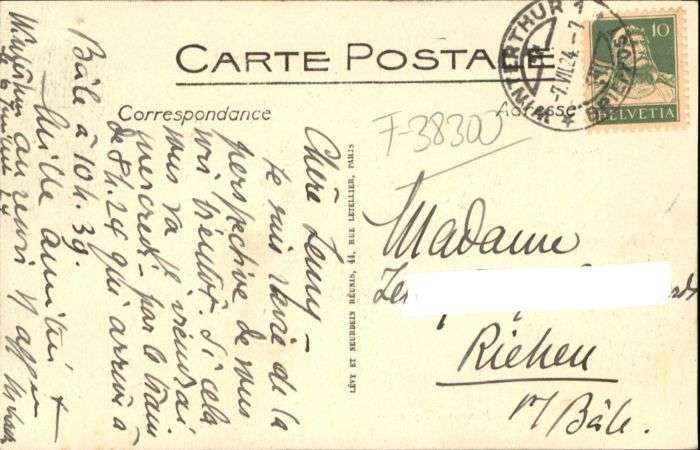 CARTE POSTALE
Correspondance
Adresse
WINTERTHUR 1
-7.VII.24.-7
BRIEFAUS
10
HELVETIA
F-38300
LÉVY ET NEURDEIN RÉUNIS, 44, RUE LETELLIER, PARIS
Chère Jenny –
Je suis ravie de la
perspective de vous
voir bientôt. Si cela
vous va je viendrai
mercredi par le train
de 8h.24 qui arrive à
Bâle à 10h.39.
Mille amitiés &
au revoir
Madame
Riehen
Bâle.